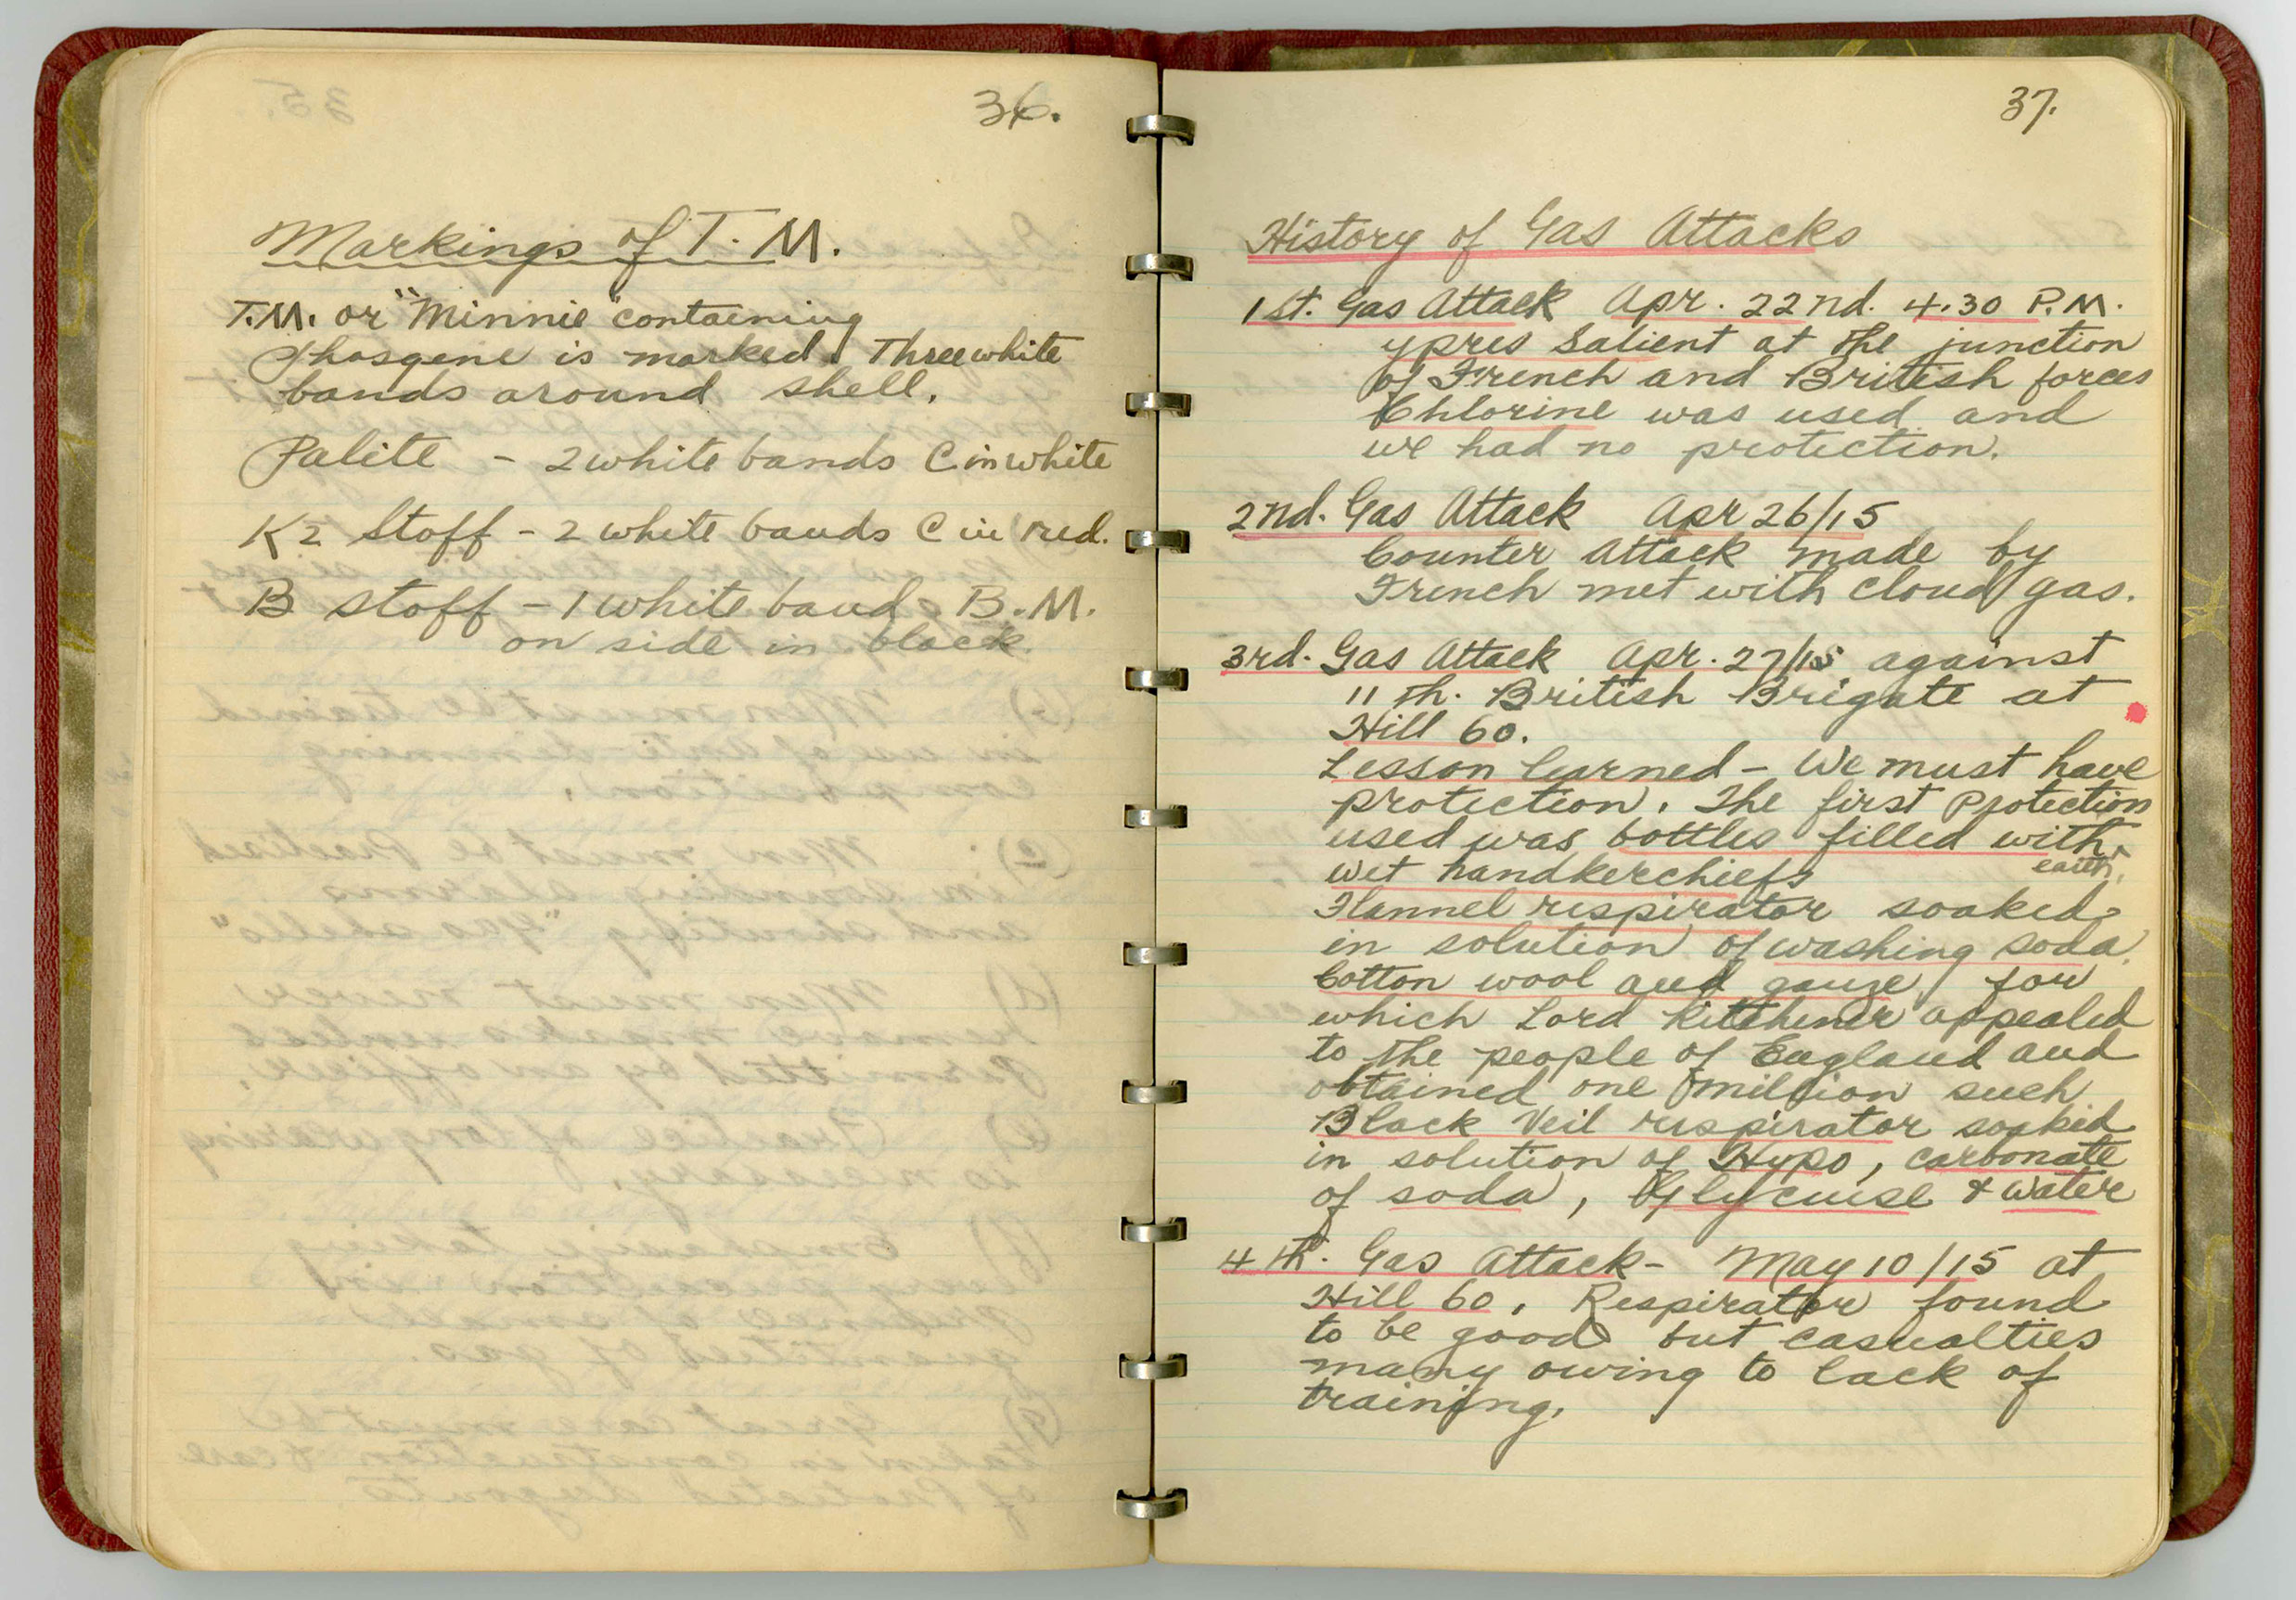 36.
Markings of T. M.
T.M. or "Minnie" containing
Phosgene is marked Three white
bands around shell.
Palite - 2 white bands C in white
K2 Stoff - 2 white bands C in red.
B stoff - 1 white band B.M.
on side in black.
37.
History of Gas Attacks
1st. Gas Attack Apr. 22nd. 4.30 P.M.
ypres Salient at the junction
of French and British forces
Chlorine was used and
we had no protection.
2nd. Gas Attack Apr 26/15
Counter Attack made by
French met with cloud gas.
3rd. Gas Attack Apr. 27/15 against
11th. British Brigate at
Hill 60.
Lesson learned - We must have
protection. The first Protection
used was bottles filled with
earth,
wet handkerchiefs
Flannel respirator soaked
in solution of washing soda.
Cotton wool and gauze, for
which Lord Kitchener appealed
to the people of England and
obtained one million such
Black Veil respirator soaked
in solution of Hypo, carbonate
of soda, Glycerine & water
4th. Gas Attack - May 10/15 at
Hill 60. Respirator found
to be good but casualties
many owing to lack of
training.